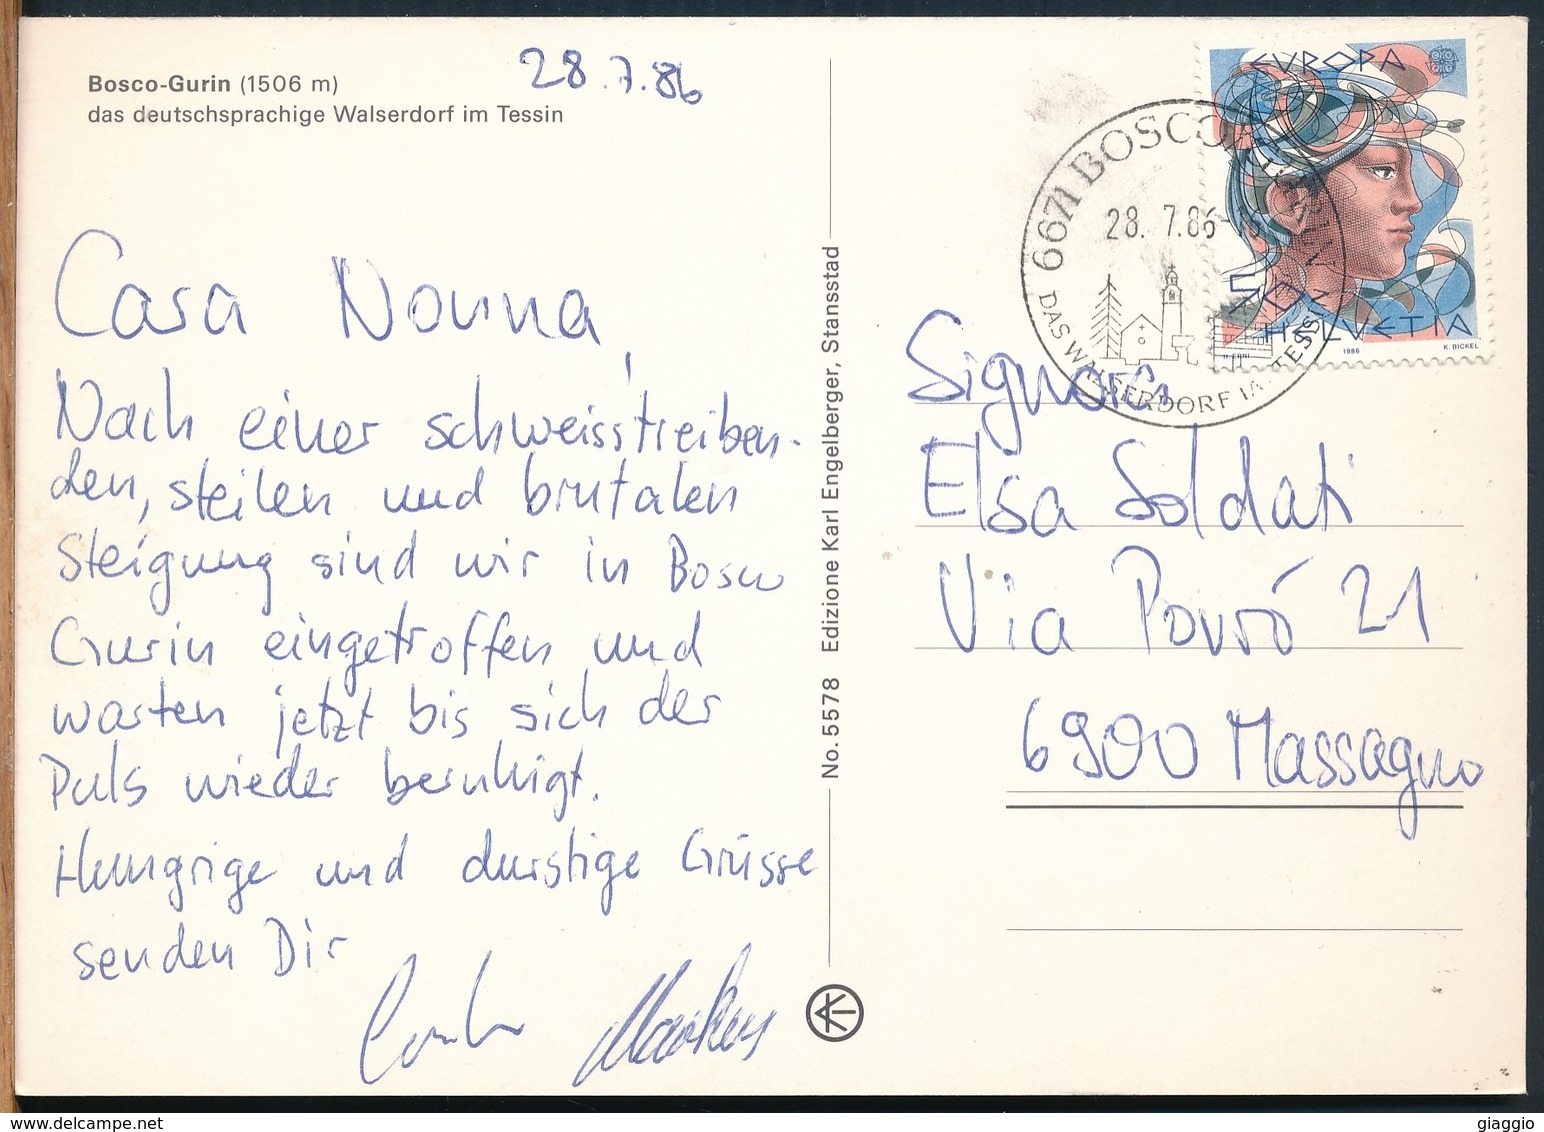 Bosco-Gurin (1506 m)
das deutschsprachige Walserdorf im Tessin
28.7.86
Cara Nonna,
Nach einer schweisstreiben-
den, steilen und brutalen
Steigung sind wir in Bosco
Gurin eingetroffen und
warten jetzt bis sich der
Puls wieder beruhigt.
Hungrige und durstige Grüsse
senden Dir
Markus
No. 5578 Edizione Karl Engelberger, Stansstad
6671 BOSCO
28. 7.86-
DAS WALSERDORF IM TESSIN
H. ERNI
EVROPA
50
HELVETIA
1986
K. BICKEL
Signora
Elsa Soldati
Via Povrò 21
6900 Massagno
www.delcampe.net
giaggio